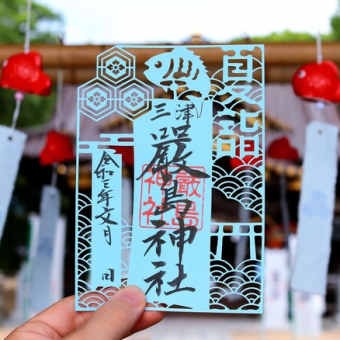 夏詣
三津
嚴島神社
嚴島
神社
令和三年文月 日